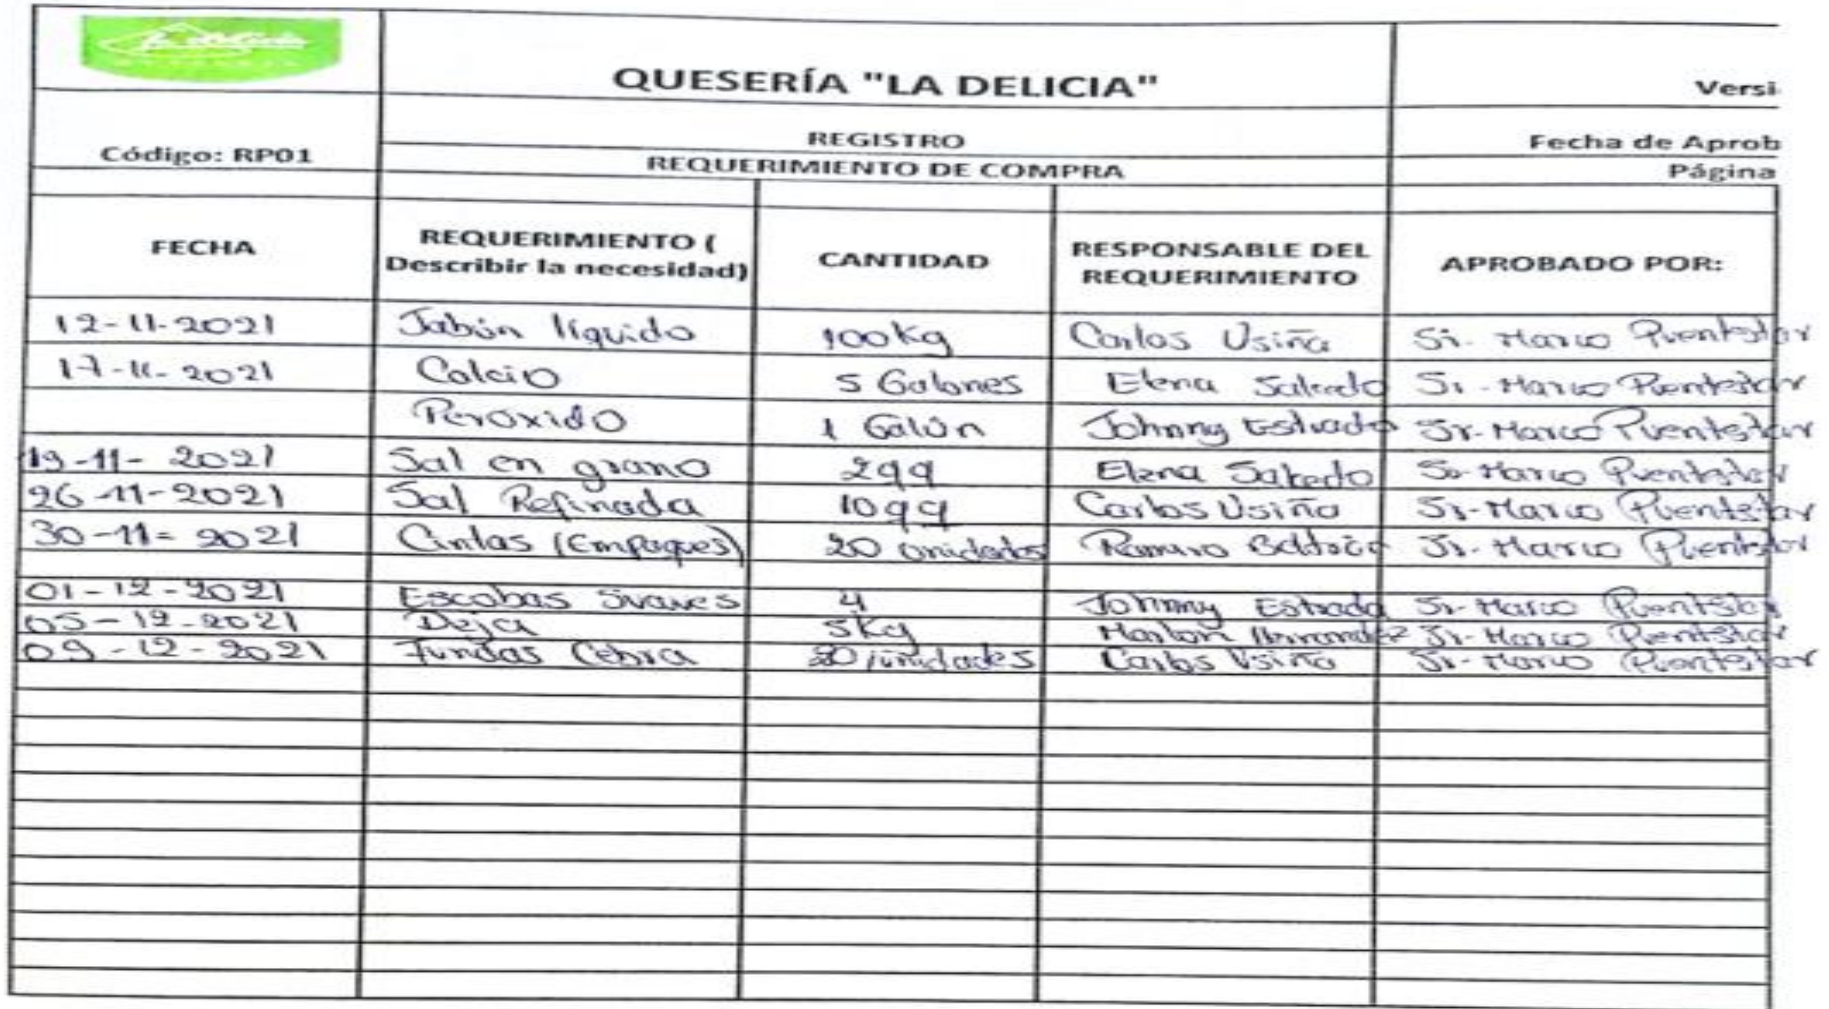 La Delicia
QUESERÍA "LA DELICIA"
Versi
Código: RP01
REGISTRO
Fecha de Aprob
REQUERIMIENTO DE COMPRA
Página
FECHA
REQUERIMIENTO (
Describir la necesidad)
CANTIDAD
RESPONSABLE DEL
REQUERIMIENTO
APROBADO POR:
12-11-2021 Jabón líquido 100Kg Carlos Usiña Sr. Marco Puentestar
17-11-2021 Calcio 5 Galones Elena Salcedo Sr. Marco Puentestar
Peroxido 1 Galón Johnny Estrada Sr. Marco Puentestar
19-11-2021 Sal en grano 2qq Elena Salcedo Sr. Marco Puentestar
26-11-2021 Sal Refinada 10qq Carlos Usiña Sr. Marco Puentestar
30-11-2021 Cintas (Empaques) 20 unidades Ramiro Sr. Marco Puentestar
01-12-2021 Escobas Suaves 4 Johnny Estrada Sr. Marco Puentestar
05-12-2021 Deja 5Kg Marlon Hernandez Sr. Marco Puentestar
09-12-2021 Fundas Cebra 20 unidades Carlos Usiña Sr. Marco Puentestar